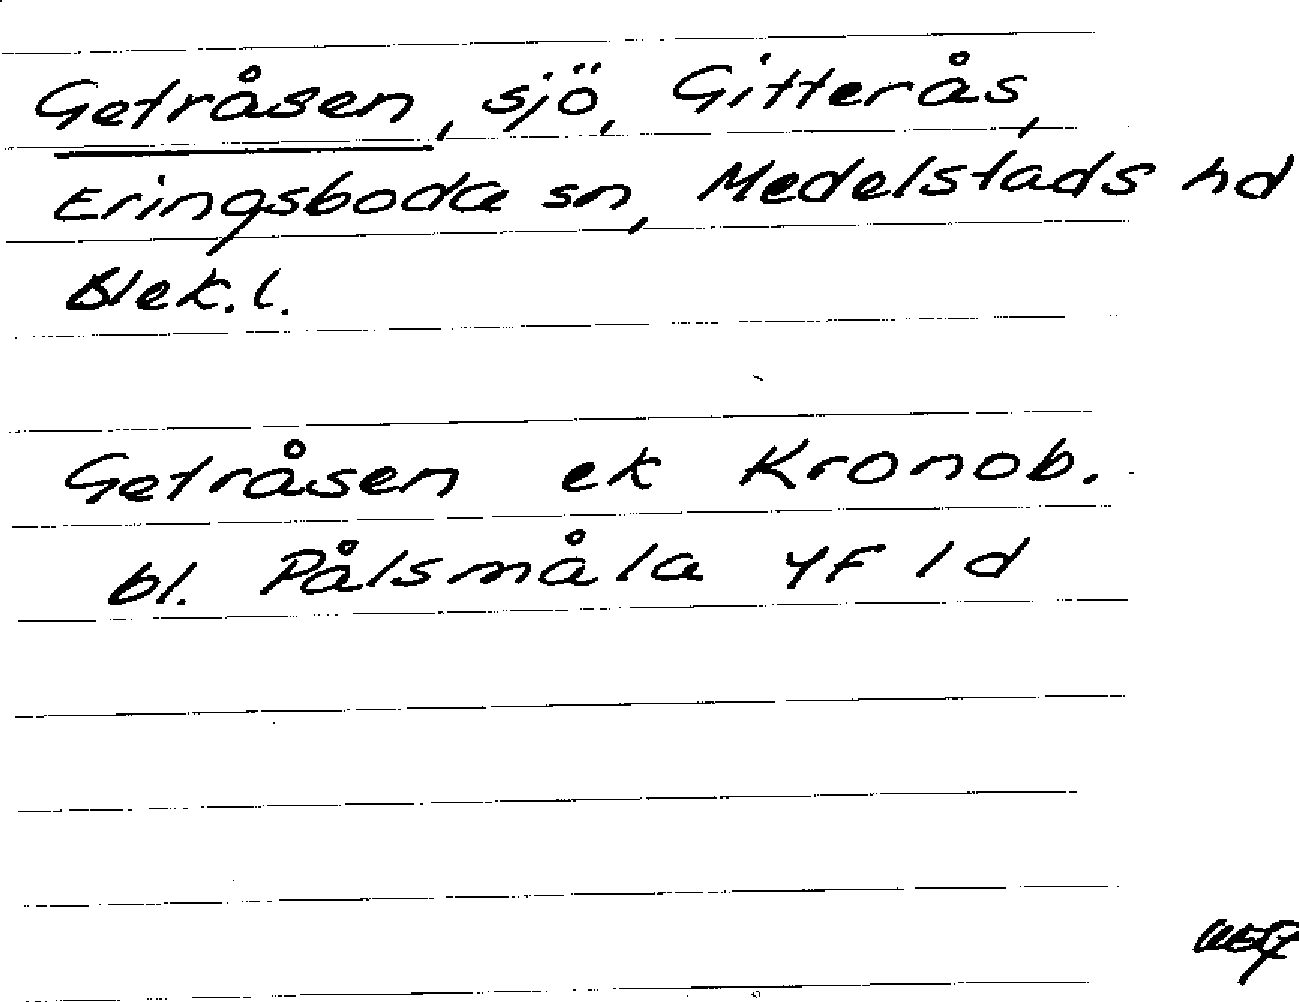 Getråsen, sjö, Gitterås,
Eringsboda sn, Medelstads hd
Blek. l.
Getråsen ek Kronob.
bl. Pålsmåla 4F 1d